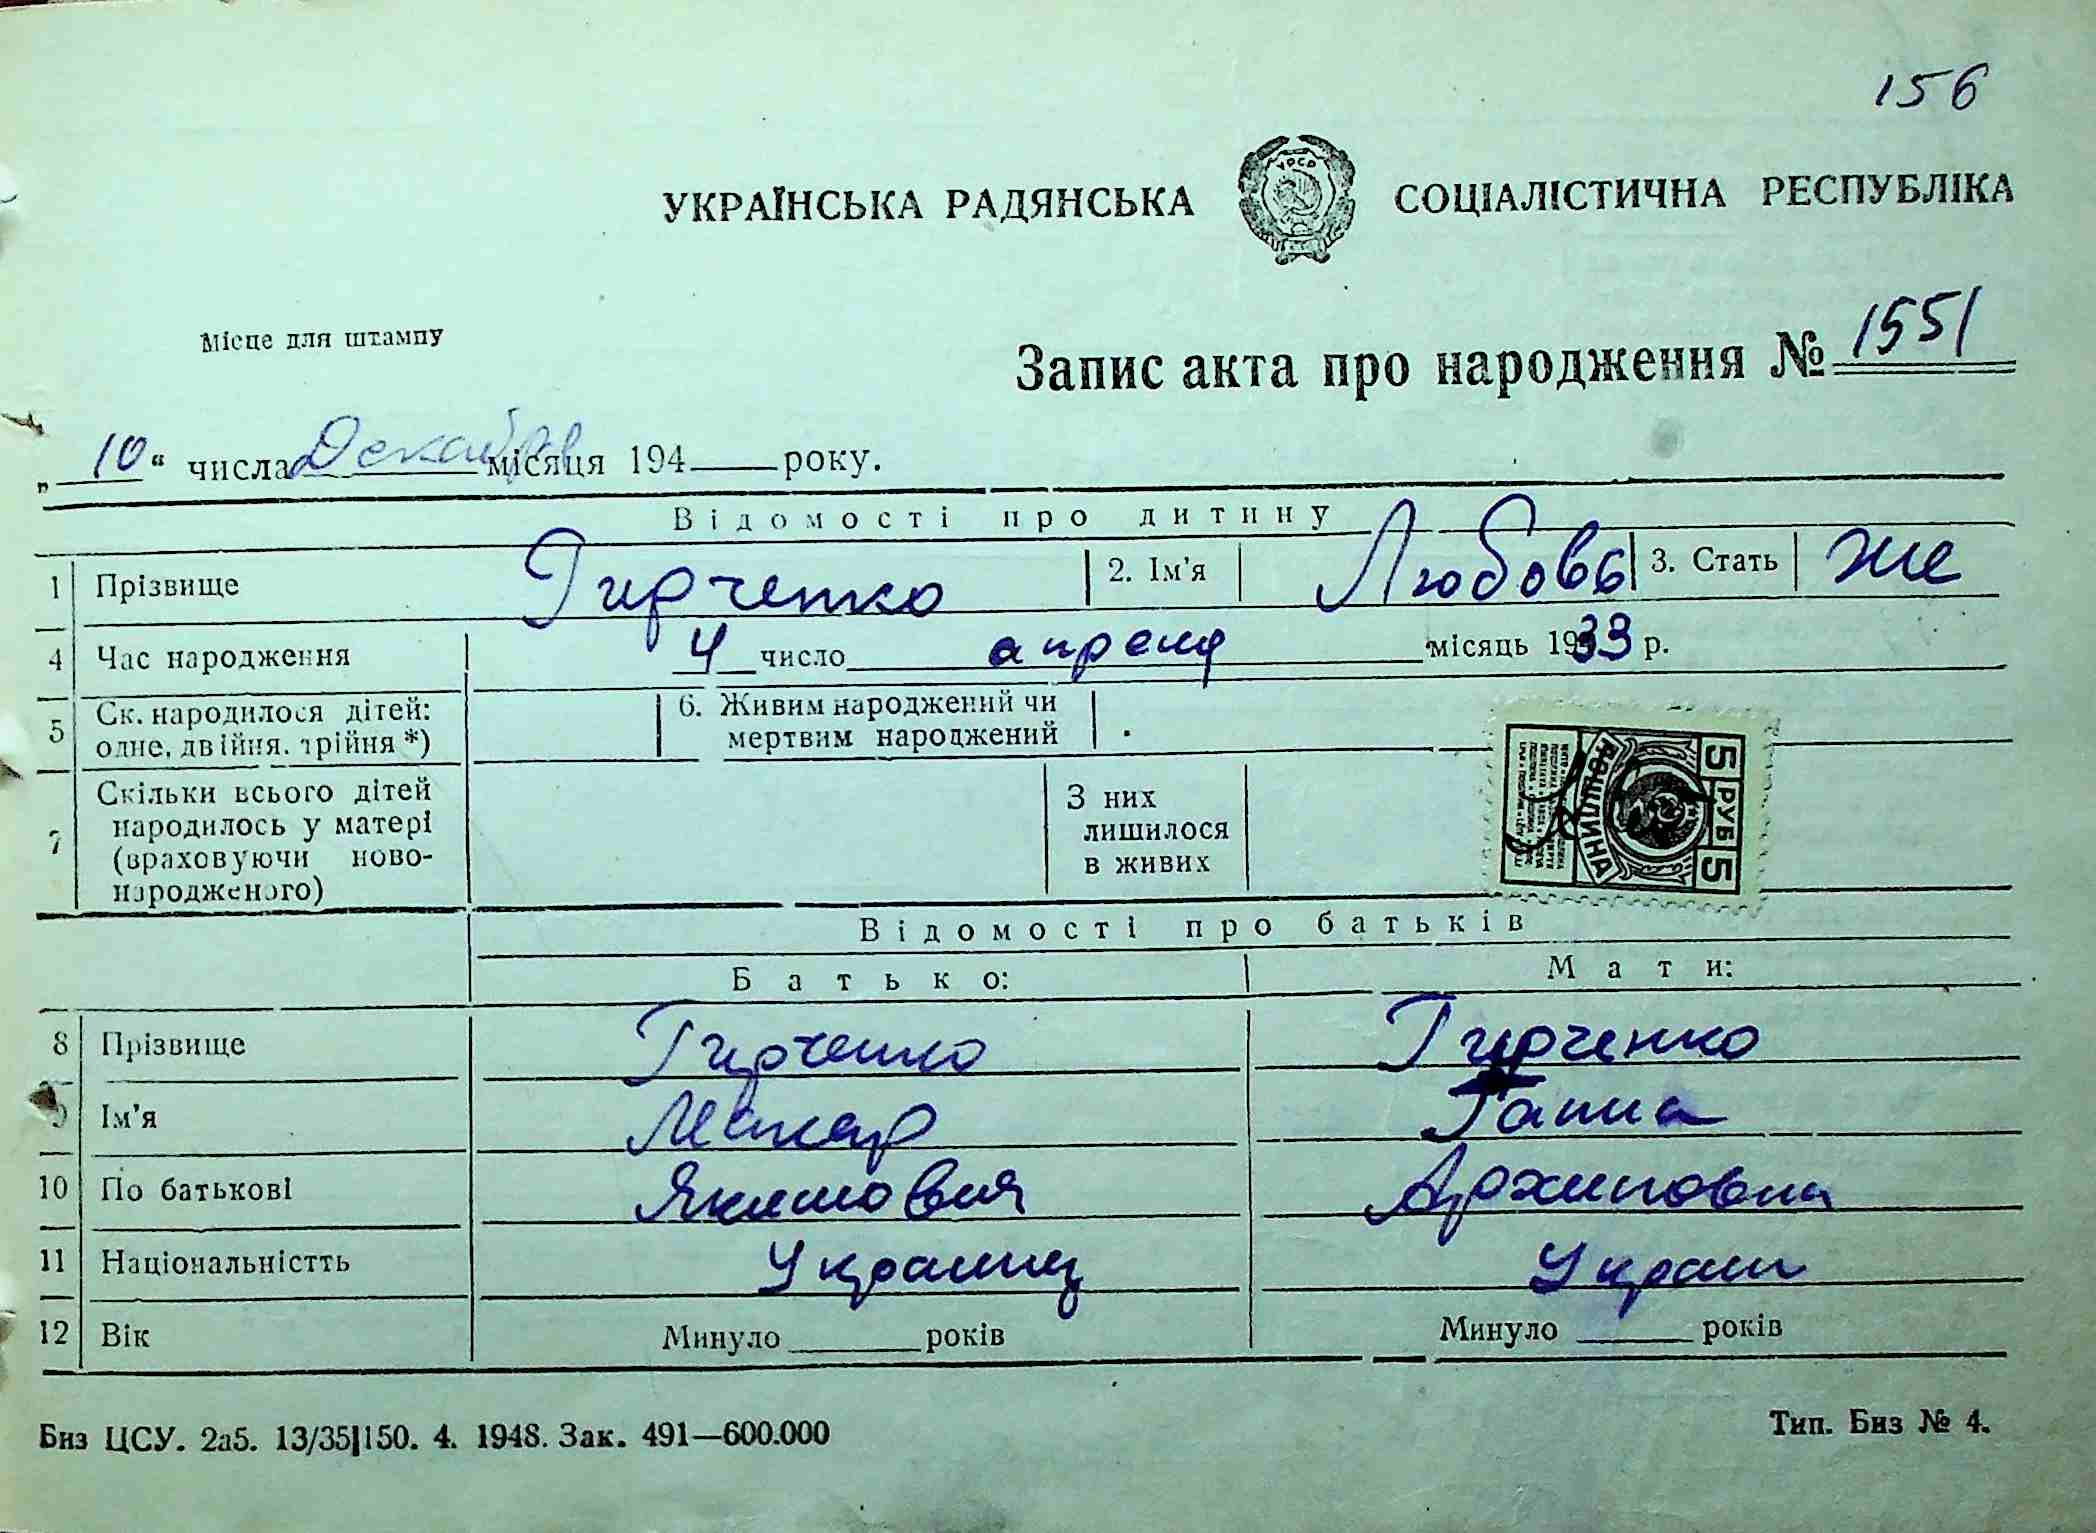 156
УКРАЇНСЬКА РАДЯНСЬКА СОЦІАЛІСТИЧНА РЕСПУБЛІКА
УРСР
Місце для штампу
Запис акта про народження № 1551
„10“ числа Декабря місяця 194 року.
Відомості про дитину
1 Прізвище Гирченко 2. Ім'я Любовь 3. Стать же
4 Час народження 4 число апреля місяць 1933 р.
5 Ск. народилося дітей: одне, двійня, трійня *) 6. Живим народжений чи мертвим народжений
7 Скільки всього дітей народилось у матері (враховуючи новонародженого) З них лишилося в живих
5 РУБ 5
Відомості про батьків
Батько: Мати:
8 Прізвище Гирченко Гирченко
9 Ім'я Макар Ганна
10 По батькові Якимович Архиповна
11 Національністть Украинец Украин
12 Вік Минуло років Минуло років
Биз ЦСУ. 2а5. 13/35|150. 4. 1948. Зак. 491—600.000 Тип. Биз № 4.